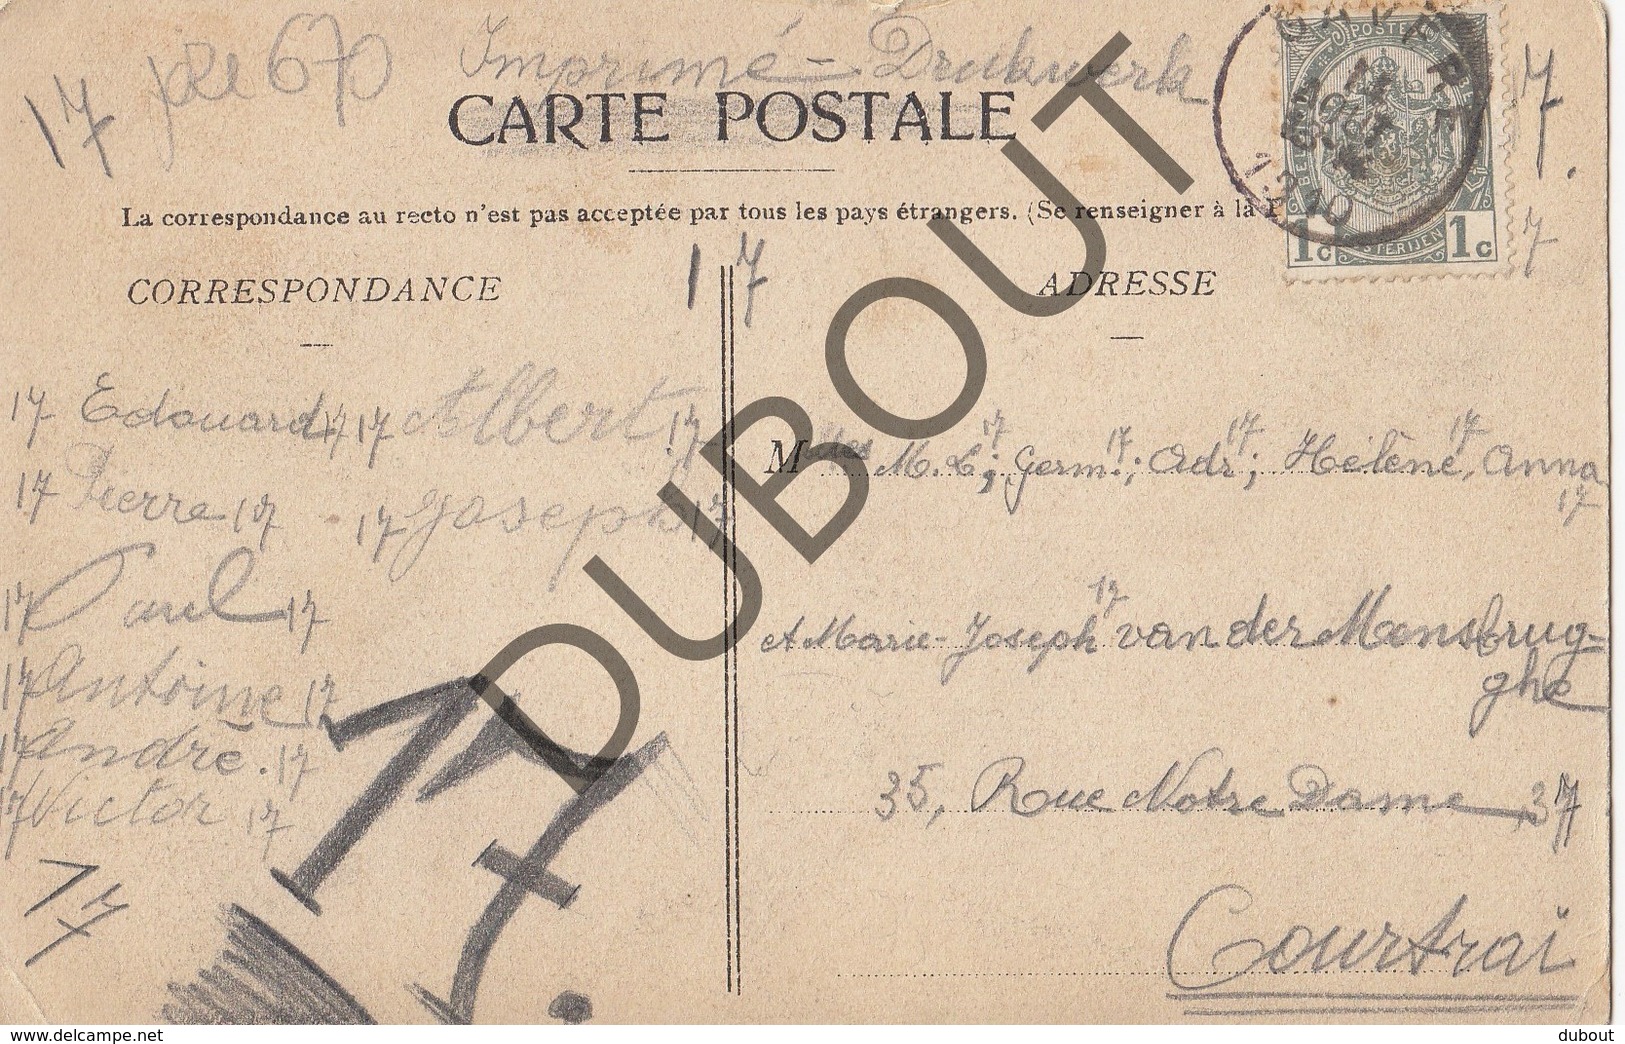 17 pre 670 Imprimé - Drukwerk
17.
CARTE POSTALE
1 c 1 c
La correspondance au recto n'est pas acceptée par tous les pays étrangers. (Se renseigner à la
17
17
CORRESPONDANCE
ADRESSE
17 Edouard 17 17 Albert. 17
17 Pierre 17 17 Joseph 17
17 Paul 17
17 Antoine 17
17 André. 17
17 Victor 17
17
17.
17 17 17 17
Melles M. L; Germ.; Adr; Hélène, Anna
17
17
et Marie-Joseph van der Mensbrug-
ghe
35, Rue Notre Dame, 37
Courtrai
DUBOUT
delcampe.net
dubout